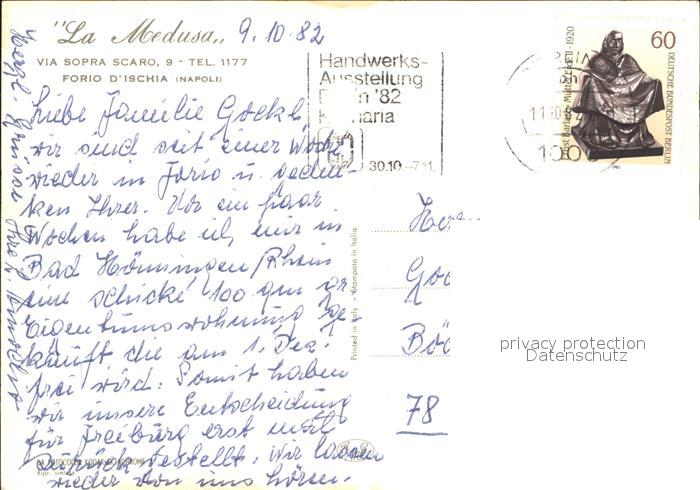 "La Medusa"
VIA SOPRA SCARO, 9 - TEL. 1177
FORIO D'ISCHIA (NAPOLI)
9.10.82
Liebe Familie Gockel
wir sind seit einer Woche
wieder in Forio u. geden-
ken Ihrer. Vor ein paar
Wochen habe ich mir in
Bad Hönningen/Rhein
eine schicke 100 qm gr.
Eigentumswohnung ge-
kauft, die am 1. Dez.
frei wird. Somit haben
wir unsere Entscheidung
für Freiburg erst mal
zurück gestellt. Wir lassen
wieder von uns hören.
Herzl. Grüsse Ihre
Handwerks-
Ausstellung
Berlin '82
30.10.-7.11.
60
DEUTSCHE BUNDESPOST BERLIN
Ernst Barlach · Mutter Erde II · 1920
1981
100
Printed in Italy - Stampato in Italia
Her
Goc
Böc
78
privacy protection
Datenschutz